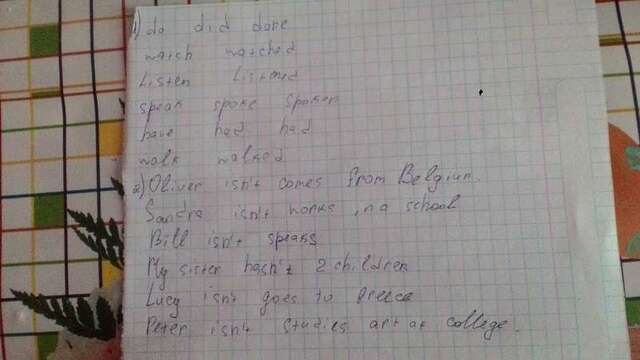 1) do did done
watch watched
listen listened
speak spoke spoken
have had had
walk walked
2) Oliver isn't comes from Belgium.
Sandra isn't works in a school
Bill isn't speaks
My sister hasn't 2 children
Lucy isn't goes to Greece
Peter isn't studies art at college.